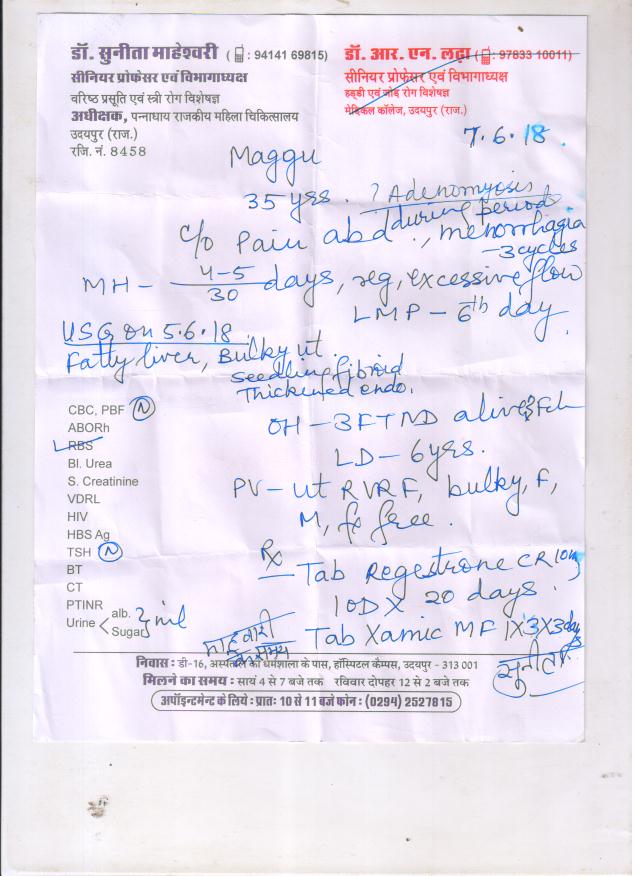 डॉ. सुनीता माहेश्वरी ( : 94141 69815)
सीनियर प्रोफेसर एवं विभागाध्यक्ष
वरिष्ठ प्रसूति एवं स्त्री रोग विशेषज्ञ
अधीक्षक, पन्नाधाय राजकीय महिला चिकित्सालय
उदयपुर (राज.)
रजि. नं. 8458
डॉ. आर. एन. लढ़ा ( : 97833 10011)
सीनियर प्रोफेसर एवं विभागाध्यक्ष
हड्डी एवं जोड़ रोग विशेषज्ञ
मेडिकल कॉलेज, उदयपुर (राज.)
7.6.18
Maggu
35 yrs. ? Adenomyosis
during periods
c/o Pain abd., menorrhagia
-3 cycles
MH - 4-5/30 days, reg, excessive flow
LMP - 6th day
USG on 5.6.18
Fatty liver, Bulky ut.
Seedling fibroid
Thickened endo.
CBC, PBF N
ABORh
RBS
Bl. Urea
S. Creatinine
VDRL
HIV
HBS Ag
TSH N
BT
CT
PTINR
Urine alb. Sugar } nil
OH - 3 FTND alive
LD - 6 yrs.
PV - ut RVRF, bulky, F,
M, fx free.
Rx
- Tab Regestrone CR 10mg
1OD X 20 days.
माहवारी के समय Tab Xamic MF 1X3X3days
सुनीता
निवास : डी-16, अस्पताल की धर्मशाला के पास, हॉस्पिटल कैम्पस, उदयपुर - 313 001
मिलने का समय : सायं 4 से 7 बजे तक रविवार दोपहर 12 से 2 बजे तक
अपॉइन्टमेन्ट के लिये : प्रातः 10 से 11 बजे फोन : (0294) 2527815